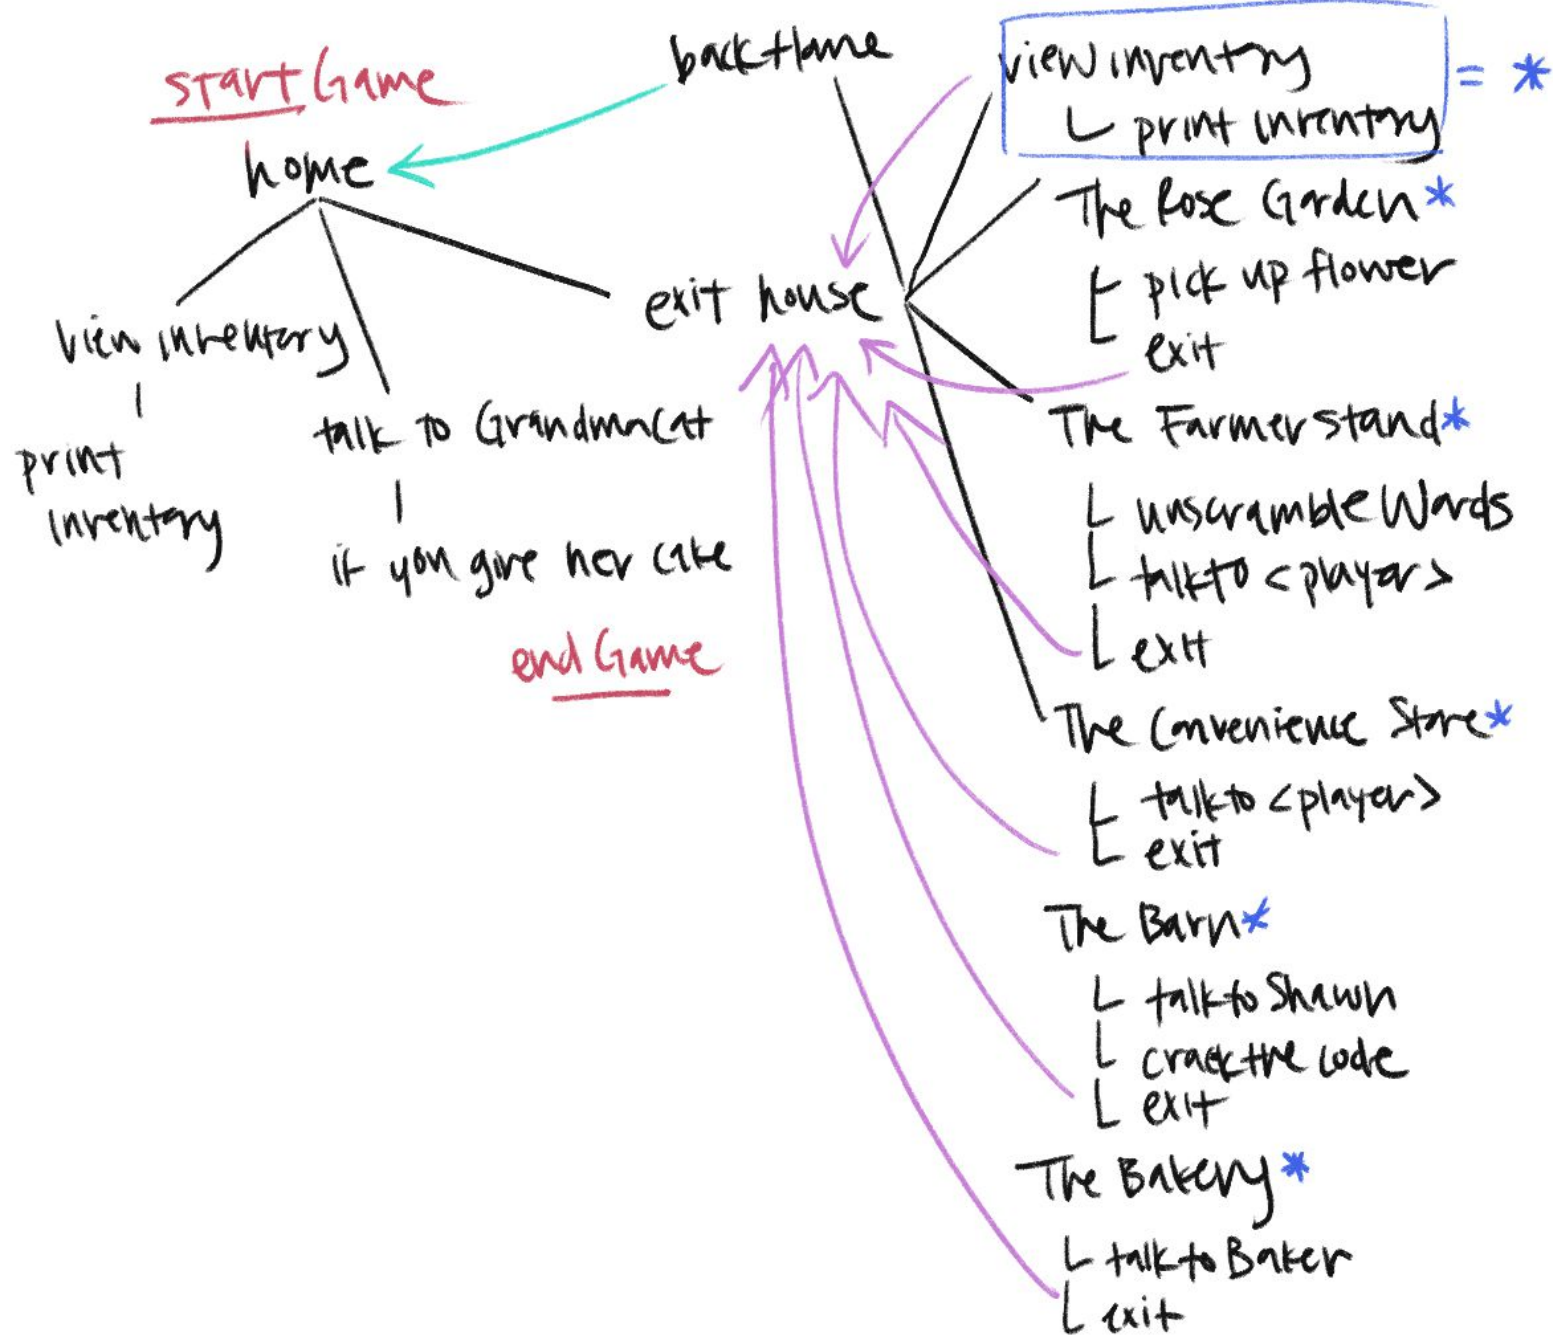 startGame
home
view inventory
print
inventory
talk to GrandmaCat
if you give her cake
endGame
back home
exit house
view inventory = *
print inventory
The Rose Garden*
pick up flower
exit
The Farmerstand*
unscrambleWords
talkto <player>
exit
The Convenience Store*
talkto <player>
exit
The Barn*
talktoShawn
crackthe code
exit
The Bakery*
talktoBaker
exit